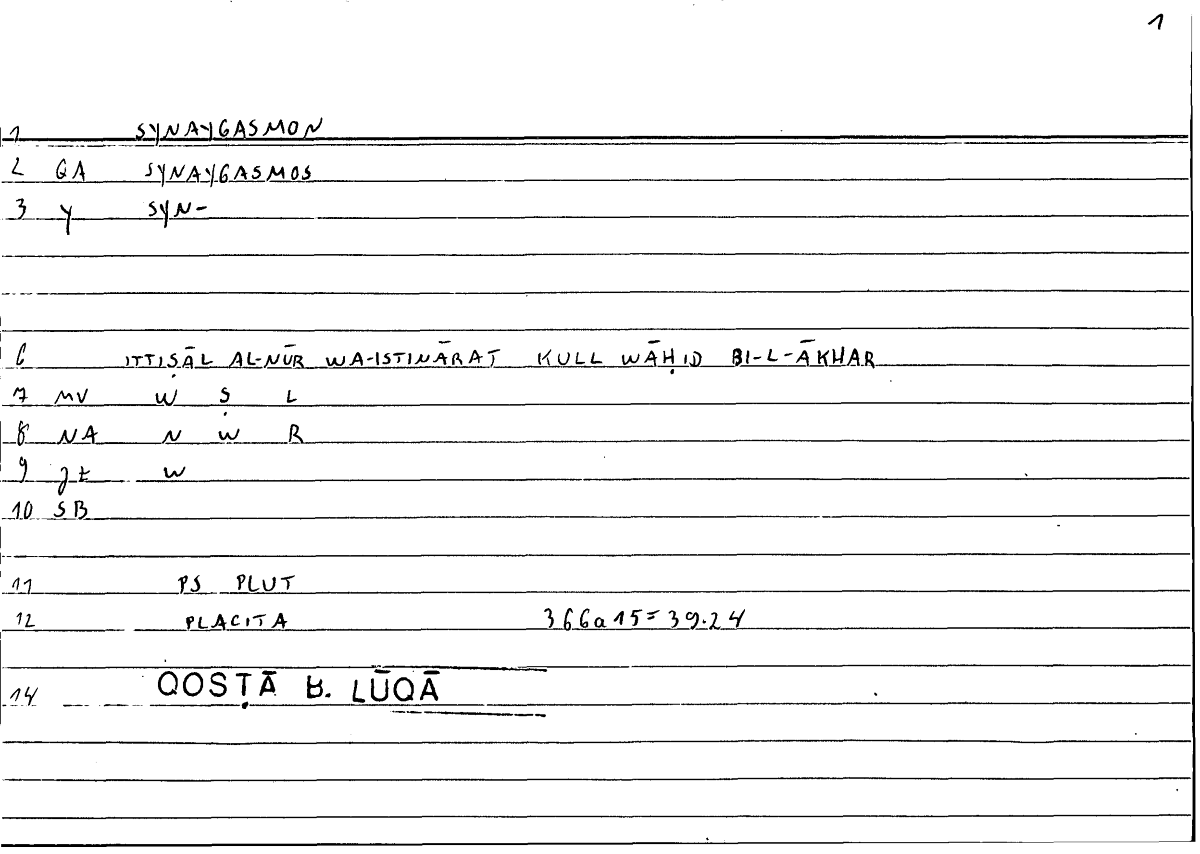 1
1 SYNAYGASMON
2 GA SYNAYGASMOS
3 Y SYN-
6 ITTIṢĀL AL-NŪR WA-ISTINĀRAT KULL WĀḤID BI-L-ĀKHAR
7 MV W Ṣ L
8 NA N W R
9 W
10 SB
11 PS PLUT
12 PLACITA 366a15=39.24
14 QOSṬĀ B. LŪQĀ